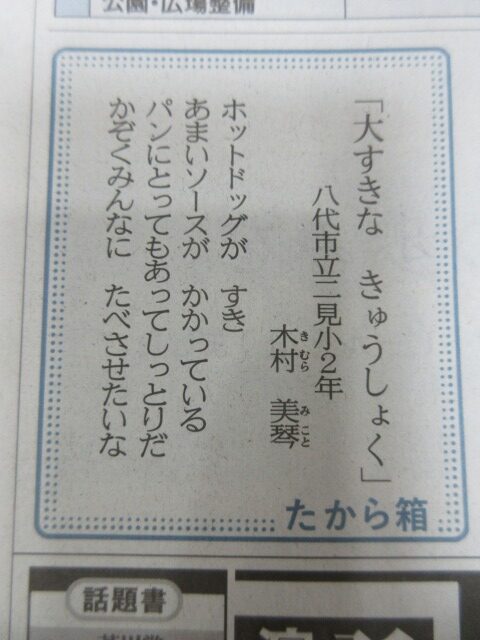 公園・広場整備
「大すきな　きゅうしょく」
八代市立二見小2年
木村　美琴
きむら　みこと
ホットドッグが　すき
あまいソースが　かかっている
パンにとってもあってしっとりだ
かぞくみんなに　たべさせたいな
たから箱
話題書